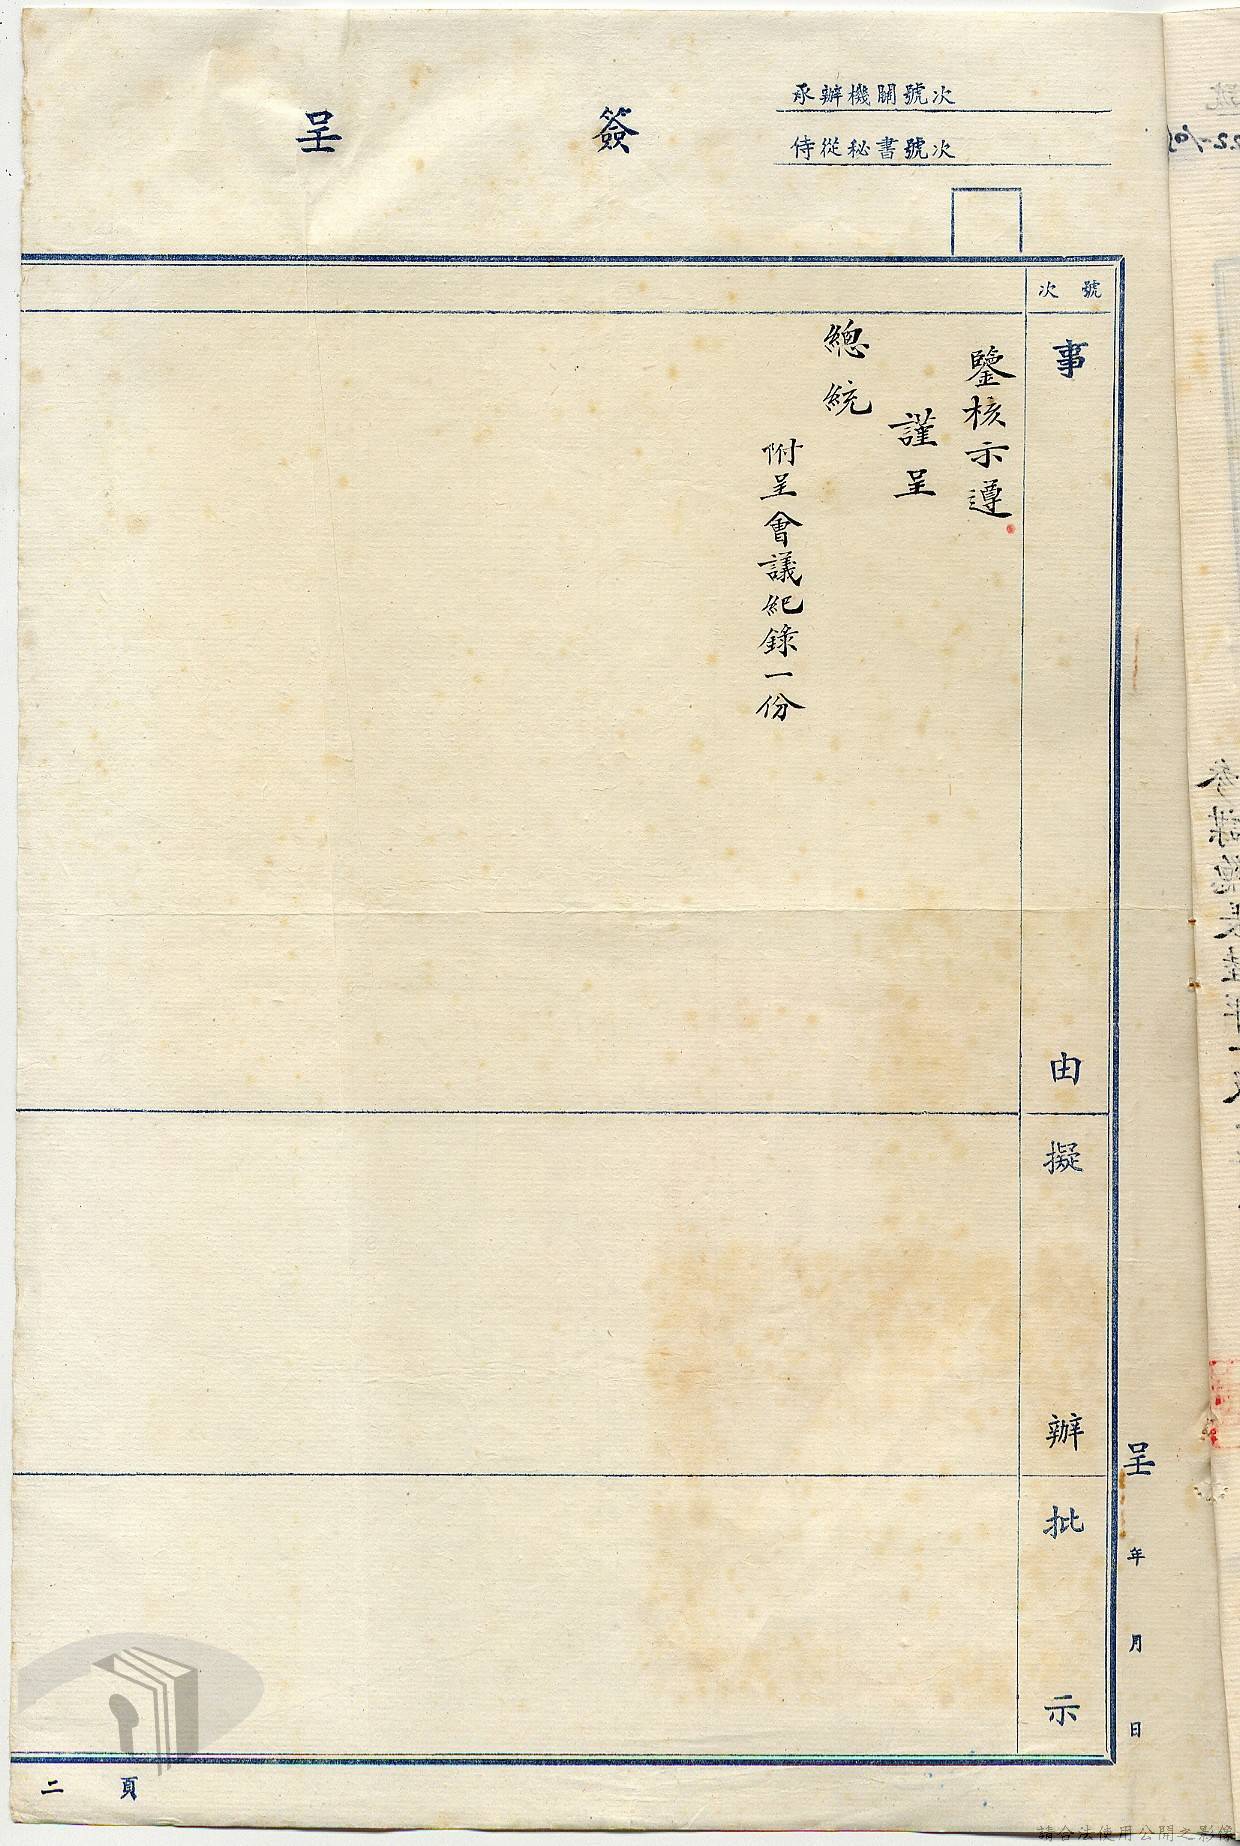 承辦機關號次
侍從秘書號次
簽呈
號次
事由
擬辦
批示
鑒核示遵
謹呈
總統
附呈會議紀錄一份
呈 年 月 日
頁二
請合法使用公開之影像